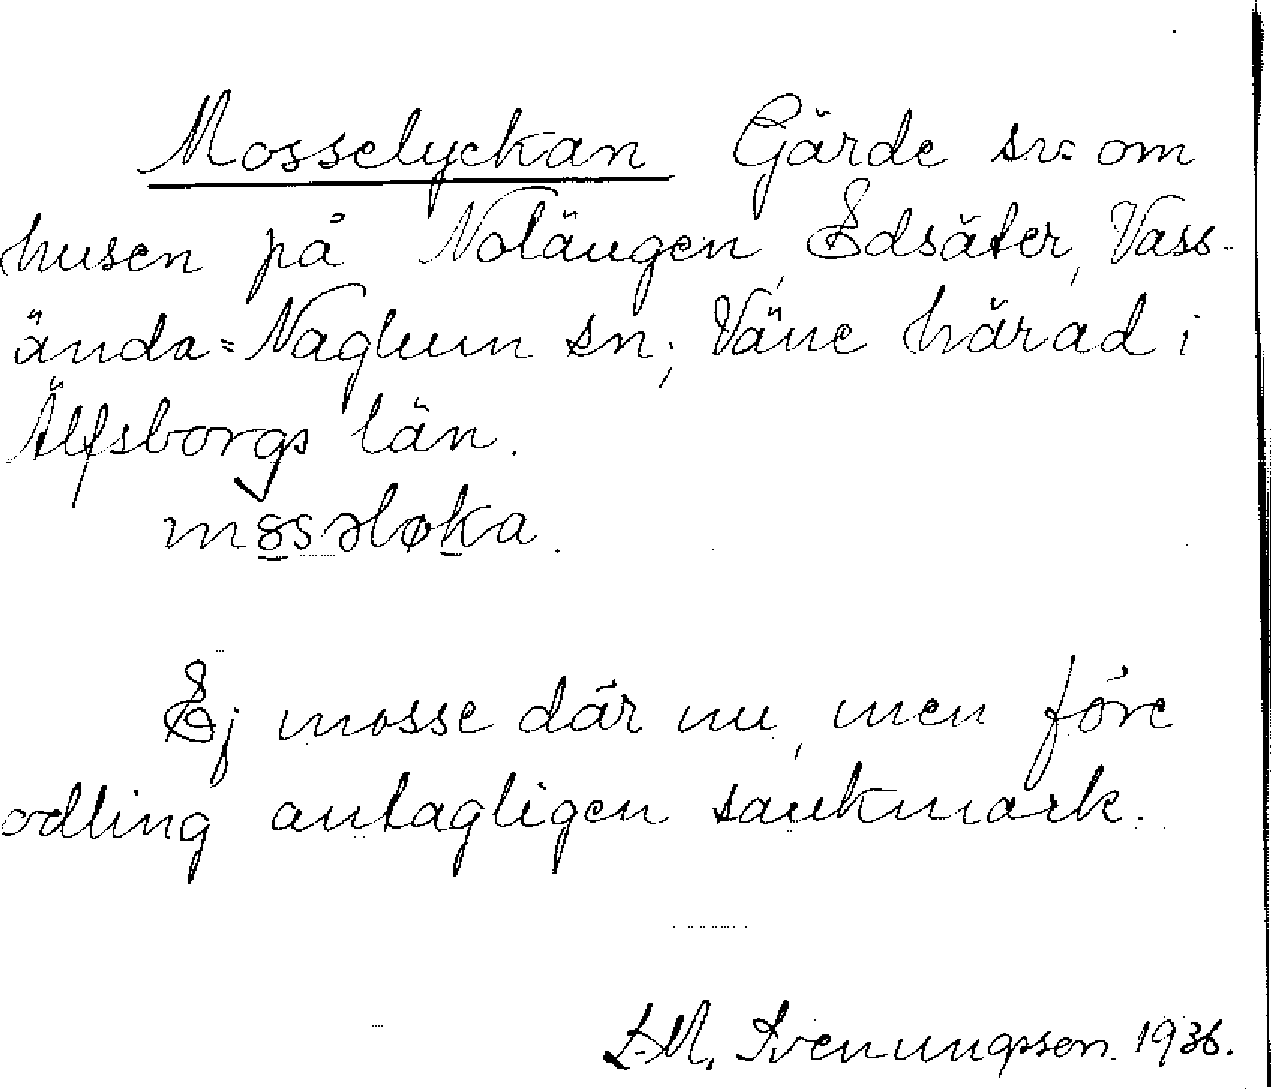 Mosselyckan Gärde sv: om
husen på Nolängen, Edsäter, Vass-
ända=Naglum sn; Väne härad i
Älfsborgs län.
mȯssəløka.
Ej mosse där nu, men före
odling antagligen sankmark.
L.M. Svenungsson. 1936.